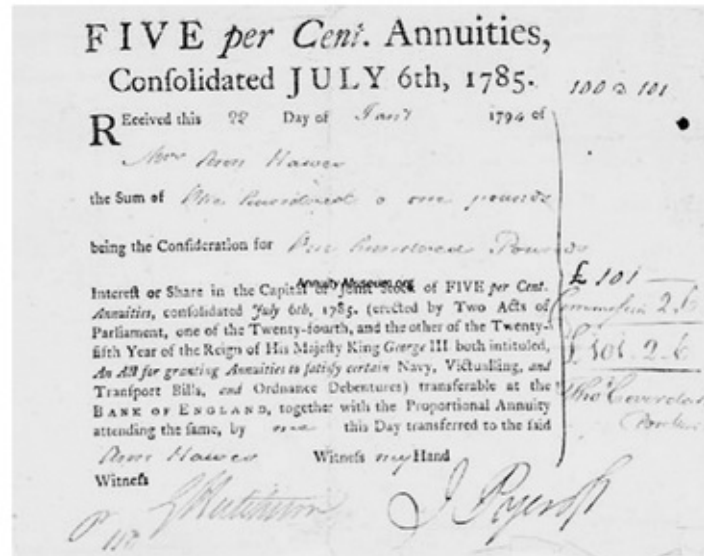 FIVE per Cent. Annuities,
Conſolidated JULY 6th, 1785.
100 a 101
REceived this 22 Day of Jany 1794 of
Mrs Ann Hawes
the Sum of One Hundred & one pounds
being the Conſideration for One hundred Pounds
£101 —
AnnuityMuseum.org
Intereſt or Share in the Capital or Joint Stock of FIVE per Cent.
Annuities, conſolidated July 6th, 1785. (erected by Two Acts of
Commiſsion 2.6
Parliament, one of the Twenty-fourth, and the other of the Twenty-
fifth Year of the Reign of His Majeſty King George III both intituled,
£101.2.6
An Act for granting Annuities to ſatisfy certain Navy, Victualling, and
Tranſport Bills, and Ordnance Debentures) tranſferable at the
Thos Coverdale
BANK OF ENGLAND, together with the Proportional Annuity
attending the ſame, by me this Day transferred to the ſaid
Ann Hawes Witneſs my Hand
Witneſs